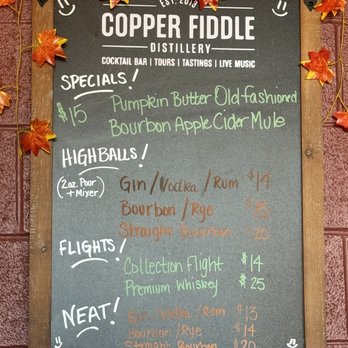 EST. 2013
COPPER FIDDLE
DISTILLERY
COCKTAIL BAR | TOURS | TASTINGS | LIVE MUSIC
SPECIALS!
$15 Pumpkin Butter Old fashioned
Bourbon Apple Cider Mule
HIGHBALLS!
(2oz. Pour + Mixer)
Gin/Vodka/Rum $14
Bourbon/Rye
Straight Bourbon $20
FLIGHTS!
Collection Flight $14
Premium Whiskey $25
NEAT!
Gin/Vodka/Rum $13
Bourbon/Rye $14
Straight Bourbon $20